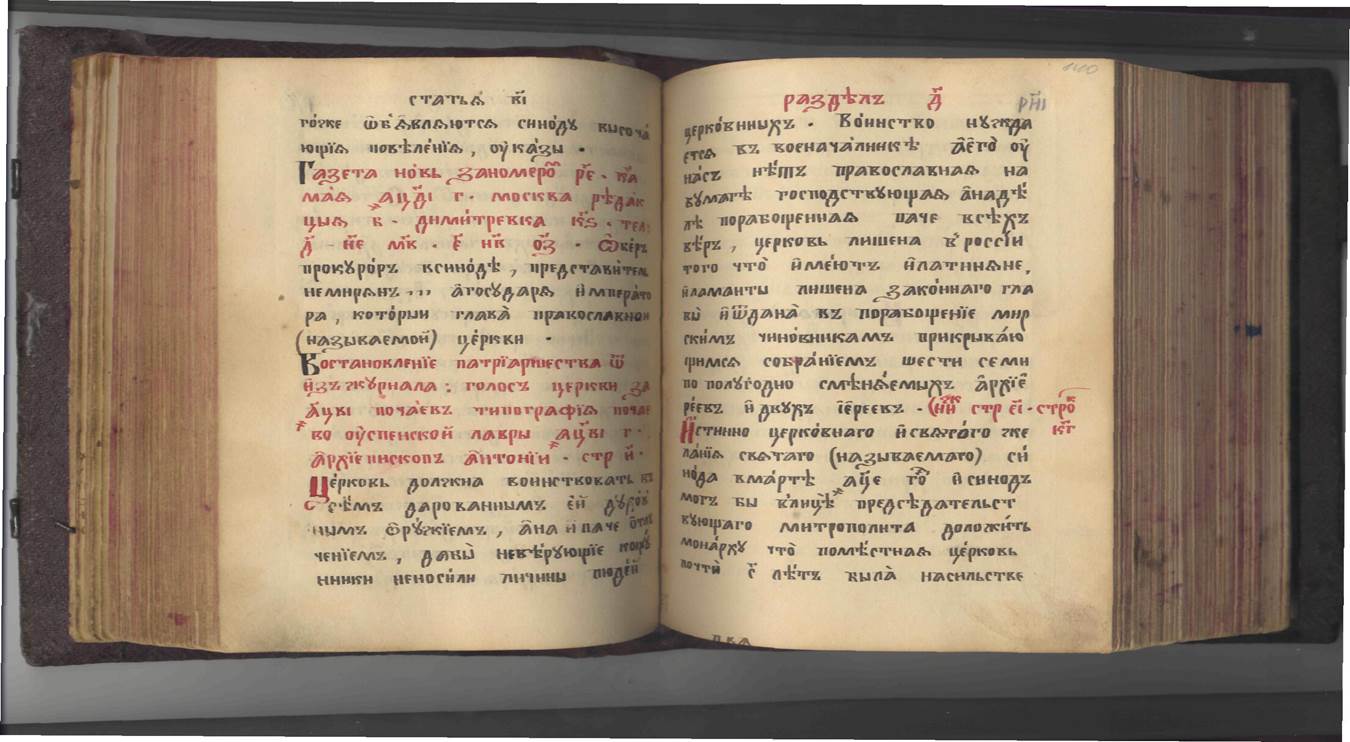 статьѧ в҃і
го́же ѿб̾ѧвлѧютсѧ сино́ду высоча́
ющїѧ повѣле́нїѧ, оу҆ка́зы .
Газета но́вь заномеро
ма́ѧ а҂ц҃ді г . москва рѣда́к
цыѧ в҃ . дими́тревка к҃ѕ .
прокуро́ръ всино́дѣ, представи́тель
немирѧнъ ,,, а҆госуда́рѧ и҆мпера́то
ра, кото́рыи глава̀ православнои
(называемой) це́ркви .
Востановле́нїе патрїаршества ѿ
и҆зъ журнала : голосъ церкви за
а҂ц҃ві поча́евъ типографїѧ почае
во оу҆спенской лавры а҂ц҃ві г .
а҆рхїепископъ а҆нтонїи . стр и҃ .
Це́рковь должна воинствовать въ
сѣ́мъ дарованнымъ е҆й духо́в
нымъ ѻ҆рꙋ́жїемъ, а҆на и҆паче ѿлꙋ
че́нїемъ, дабы̀ невѣ́рующїе
нники неноси́ли личины люде́й
раздѣлъ д҃
рн҃і
церко́вныхъ . Во́инство нужда
етсѧ въ военача́линкѣ а҆е҆го̀ оу҆
на́съ нѣ́тъ православнаѧ на
бума́гѣ господствующаѧ а҆надѣ́
лѣ порабощеннаѧ паче всѣ́хъ
вѣ́ръ, церковь лишена в̾россі́и
того что̀ и҆ме́ютъ и҆лати́нѧне,
и҆ламанты лишена зако́ннаго гла
вы̀ и҆ѿдана̀ въ порабоще́нїе мир
ски́мъ чино́вникамъ прикрыва́ю
щимсѧ собра́нїемъ шести семи
по полуго́дно смѣнѧ́емыхъ а҆рхїе҆
ре́евъ и҆ двухъ і҆ере́евъ . (ни́ж стр е҃і . строк
к҃г
И҆́стинно церко́внаго и҆свѧта́го же
ла́нїѧ свѧтаго (называемаго) си́
но́да вма́ртѣ а҂ц҃е го и҆ синодъ
могъ бы влицѣ̀ предсѣ́дательст
вующаго митропо́лита доложи́ть
мона́рху что̀ помѣ́стнаѧ це́рковь
почтѝ с҃ лѣ́тъ была̀ насильстве